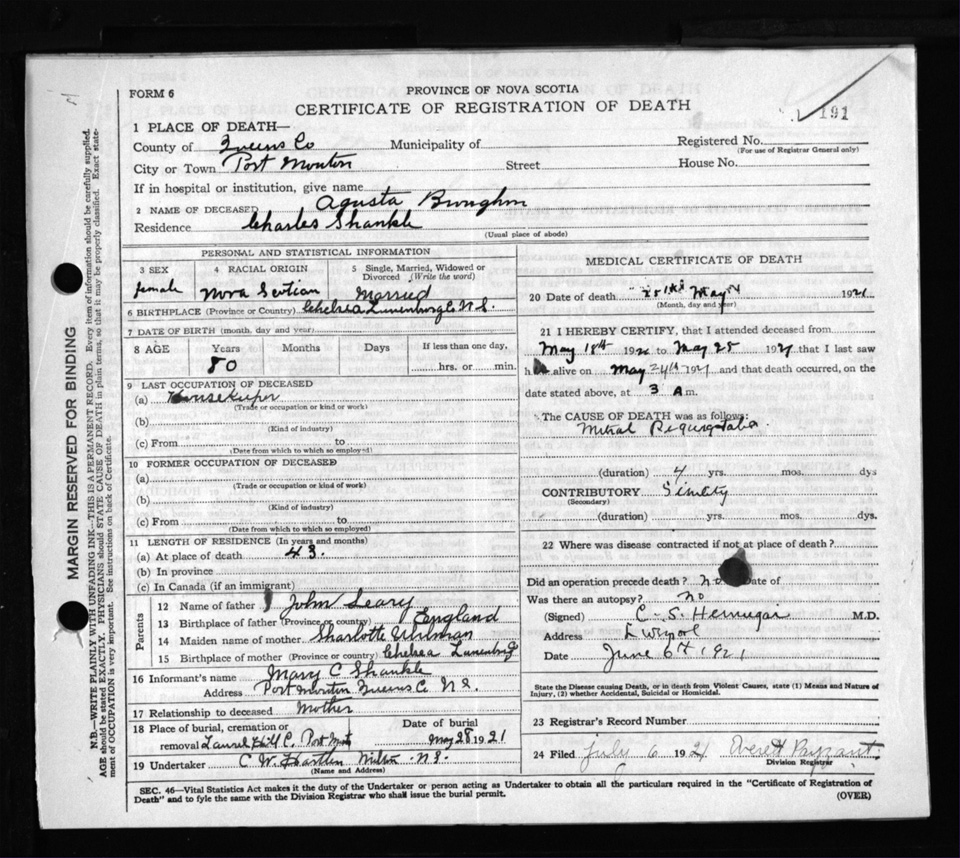 FORM 6
PROVINCE OF NOVA SCOTIA
CERTIFICATE OF REGISTRATION OF DEATH
191
1 PLACE OF DEATH—
County of Queens Co Municipality of Registered No.
(For use of Registrar General only)
City or Town Port Mouton Street House No.
If in hospital or institution, give name
2 NAME OF DECEASED Agusta
Residence Charles Shankle
(Usual place of abode)
PERSONAL AND STATISTICAL INFORMATION
3 SEX 4 RACIAL ORIGIN 5 Single, Married, Widowed or Divorced (Write the word)
female Nova Scotian Married
6 BIRTHPLACE (Province or Country) Chelsea Lunenburg Co N.S.
7 DATE OF BIRTH (month, day and year)
8 AGE Years Months Days If less than one day,
80 hrs. or min.
9 LAST OCCUPATION OF DECEASED
(a) Housekeeper
(Trade or occupation or kind or work)
(b)
(Kind of industry)
(c) From to
(Date from which to which so employed)
10 FORMER OCCUPATION OF DECEASED
(a)
(Trade or occupation or kind of work)
(b)
(Kind of industry)
(c) From to
(Date from which to which so employed)
11 LENGTH OF RESIDENCE (In years and months)
(a) At place of death 43
(b) In province
(c) In Canada (if an immigrant)
Parents
12 Name of father John Leary
13 Birthplace of father (Province or country) England
14 Maiden name of mother Sharlotte Uhlman
15 Birthplace of mother (Province or country) Chelsea Lunenburg
16 Informant's name Mary C Shankle
Address Port Mouton Queens C. N.S.
17 Relationship to deceased Mother
18 Place of burial, cremation or removal Laurel Hill C. Port Date of burial May 28 1921
19 Undertaker C. W. Milton N.S.
(Name and Address)
MEDICAL CERTIFICATE OF DEATH
20 Date of death May 1921
(Month, day and year)
21 I HEREBY CERTIFY, that I attended deceased from
May 18th 192 to May 25 1921 that I last saw
h alive on May 24th 1921 and that death occurred, on the
date stated above, at 3 A m.
The CAUSE OF DEATH was as follows:
Mitral
(duration) 4 yrs. mos. dys
CONTRIBUTORY
(Secondary)
(duration) yrs. mos. dys.
22 Where was disease contracted if not at place of death?
Did an operation precede death? no Date of
Was there an autopsy? no
(Signed) C. S. M.D.
Address
Date June 6th 1921
State the Disease causing Death, or in death from Violent Causes, state (1) Means and Nature of
Injury, (2) whether Accidental, Suicidal or Homicidal.
23 Registrar's Record Number
24 Filed July 6 1921 Everett Payzant
Division Registrar
SEC. 46—Vital Statistics Act makes it the duty of the Undertaker or person acting as Undertaker to obtain all the particulars required in the "Certificate of Registration of
Death" and to fyle the same with the Division Registrar who shall issue the burial permit.
(OVER)
MARGIN RESERVED FOR BINDING
N.B.—WRITE PLAINLY WITH UNFADING INK—THIS IS A PERMANENT RECORD. Every item of information should be carefully supplied.
AGE should be stated EXACTLY. PHYSICIANS should STATE CAUSE OF DEATH in plain terms, so that it may be properly classified. Exact state-
ment of OCCUPATION is very important. See instructions on back of Certificate.